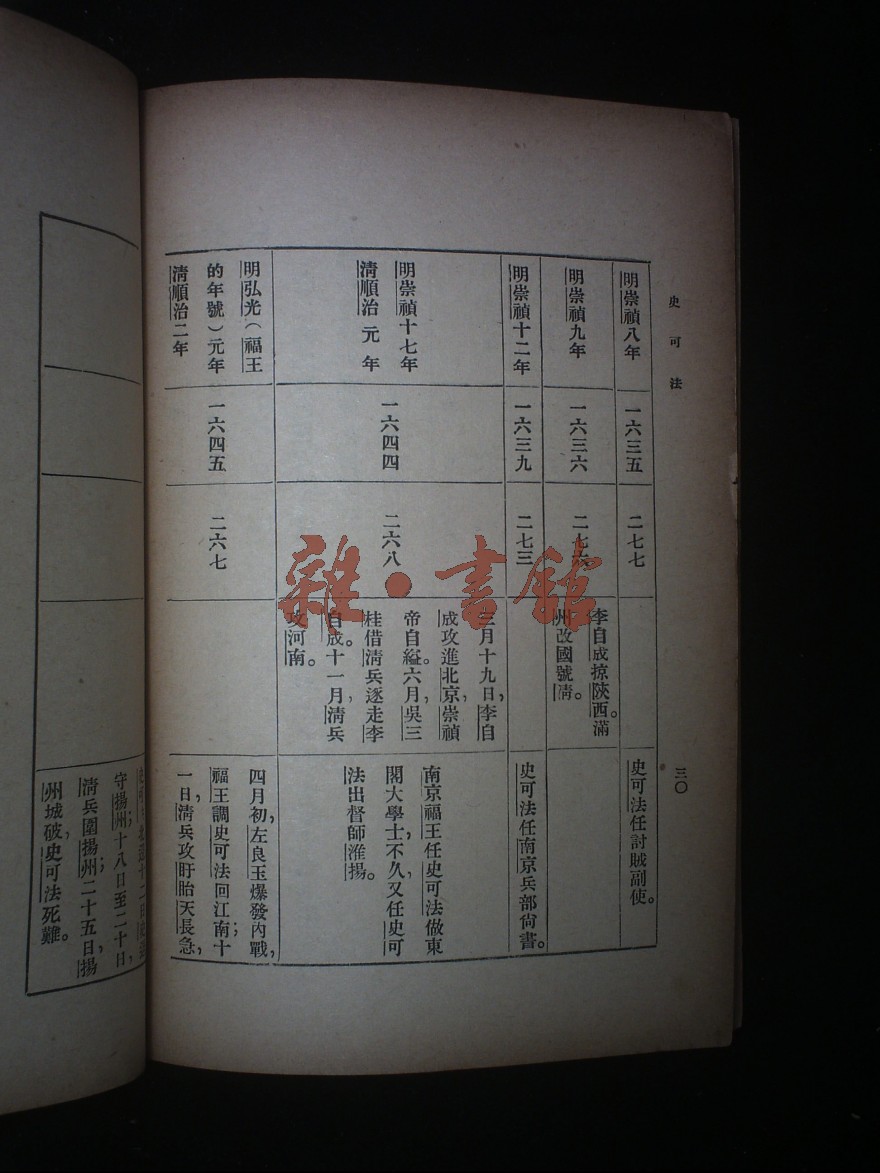 史可法
三〇
明崇禎八年
一六三五
二七七
史可法任討賊副使。
明崇禎九年
一六三六
李自成掠陝西。滿
州改國號清。
明崇禎十二年
一六三九
二七三
史可法任南京兵部尙書。
明崇禎十七年
清順治元年
一六四四
二六八
三月十九日，李自
成攻進北京，崇禎
帝自縊。六月，吳三
桂借清兵逐走李
自成。十一月清兵
攻河南。
南京福王任史可法做東
閣大學士，不久又任史可
法出督師淮揚。
明弘光（福王
的年號）元年
清順治二年
一六四五
二六七
四月初，左良玉爆發內戰，
福王調史可法回江南；十
一日，清兵攻盱眙天長急，
守揚州；十八日至二十日，
清兵圍揚州二十五日，揚
州城破，史可法死難。
雜·書館